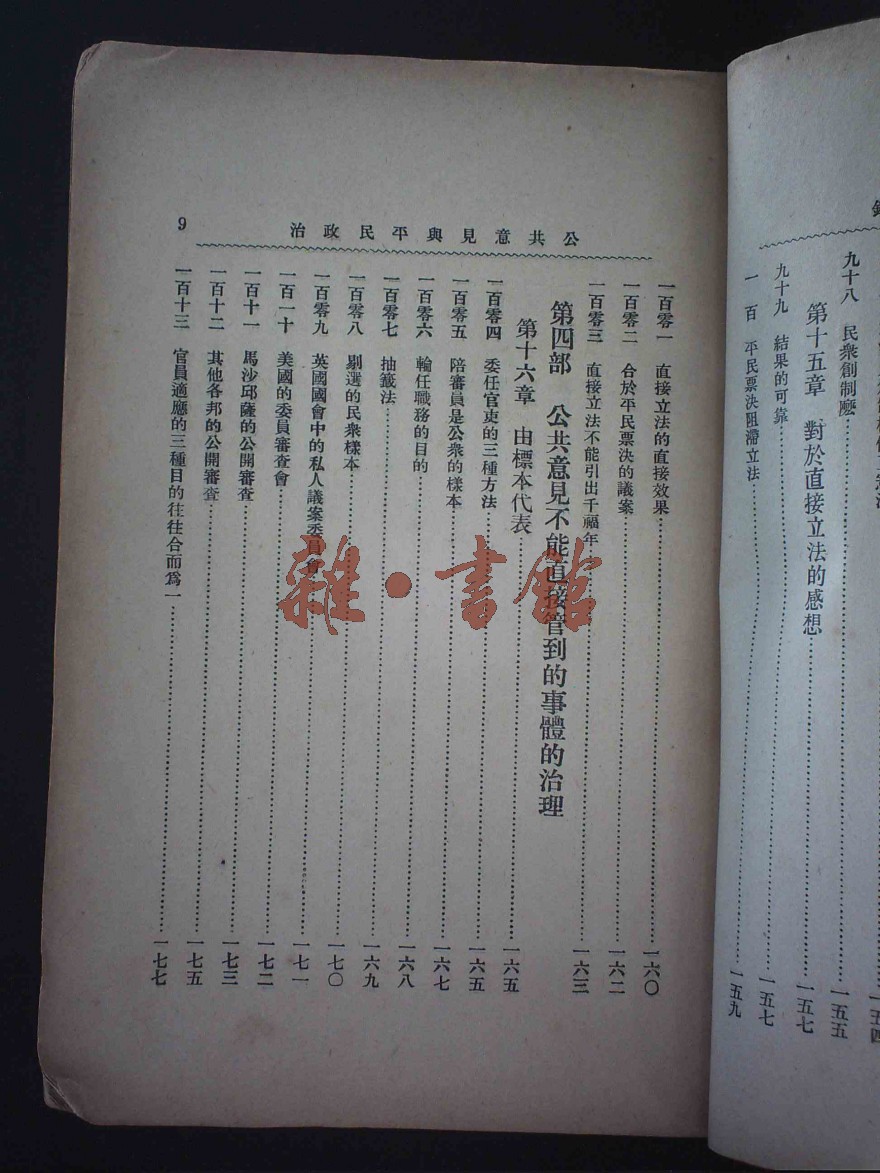 九十八 民衆創制麽 一五五
第十五章 對於直接立法的感想 一五七
九十九 結果的可靠 一五七
一百 平民票決阻滯立法 一五九
公共意見與平民政治
9
一百零一 直接立法的直接效果 一六〇
一百零二 合於平民票決的議案 一六二
一百零三 直接立法不能引出千福年 一六三
第四部 公共意見不能直接管到的事體的治理
第十六章 由標本代表 一六五
一百零四 委任官吏的三種方法 一六五
一百零五 陪審員是公衆的樣本 一六七
一百零六 輪任職務的目的 一六八
一百零七 抽籤法 一六九
一百零八 剔選的民衆樣本 一七〇
一百零九 英國國會中的私人議案委員會 一七一
一百一十 美國的委員審查會 一七二
一百十一 馬沙邱薩的公開審查 一七三
一百十二 其他各邦的公開審查 一七五
一百十三 官員適應的三種目的往往合而爲一 一七七
雜·書館